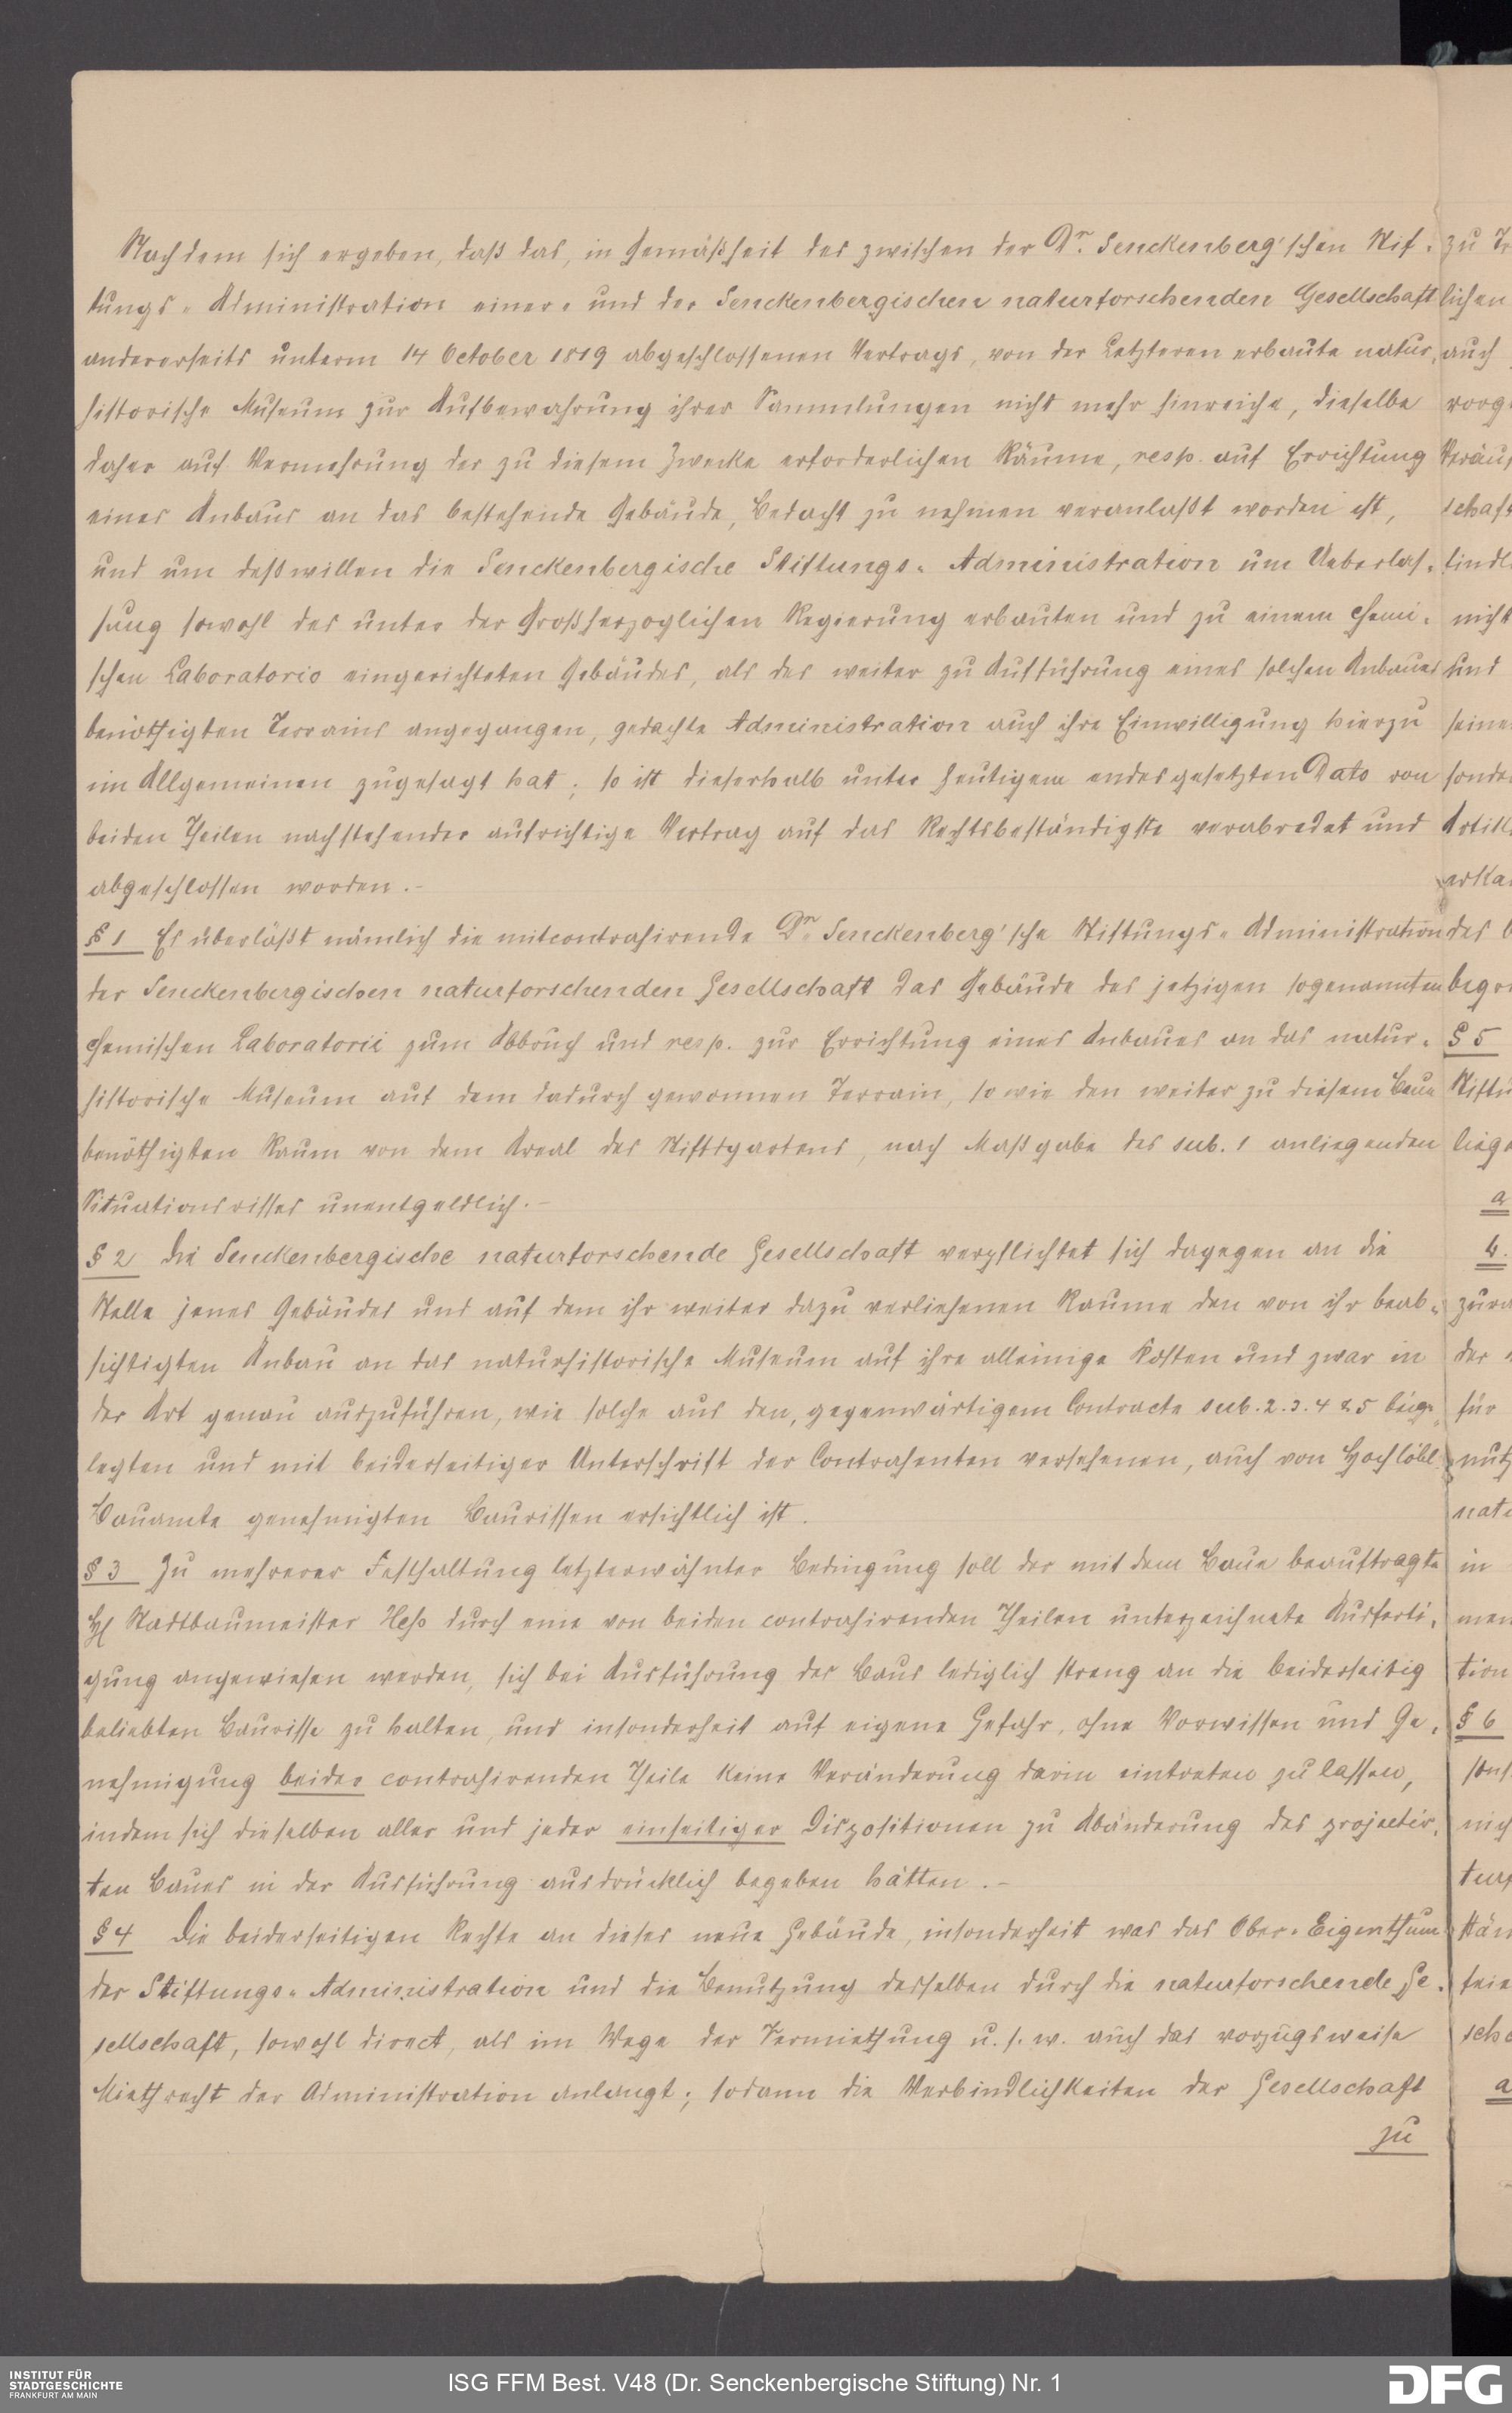 Nachdem sich ergeben, daß das, in Gemäßheit des zwischen der Dr. Senckenberg'schen Stif-
tungs-Administration einer- und der Senckenbergischen naturforschenden Gesellschaft
andererseits unterm 14 October 1819 abgeschlossenen Vertrags, von der Letzteren erbaute natur-
historische Museum zur Aufbewahrung ihrer Sammlungen nicht mehr hinreiche, dieselbe
daher auf Vermehrung der zu diesem Zwecke erforderlichen Räume, resp. auf Errichtung
eines Anbaus an das bestehende Gebäude, Bedacht zu nehmen veranlaßt worden ist,
und um deßwillen die Senckenbergische Stiftungs-Administration um Ueberlas-
sung sowohl des unter der Großherzoglichen Regierung erbauten und zu einem chemi-
schen Laboratorio eingerichteten Gebäudes, als des weiter zu Aufführung eines solchen Anbaues
benöthigten Terrains angegangen, gedachte Administration auch ihre Einwilligung hierzu
im Allgemeinen zugesagt hat; so ist dieserhalb unter heutigem endesgesetzten Dato von
beiden Theilen nachstehender aufrichtige Vertrag auf das Rechtsbeständigste verabredet und
abgeschlossen worden.-
§ 1 Es überläßt nämlich die mitcontrahirende Dr. Senckenberg'sche Stiftungs-Administration
der Senckenbergischen naturforschenden Gesellschaft das Gebäude des jetzigen sogenannten
chemischen Laboratorii zum Abbruch und resp. zur Errichtung eines Anbaues an das natur-
historische Museum auf dem dadurch gewonnen Terrain, so wie den weiter zu diesem Baue
benöthigten Raum von dem Areal des Stiftsgartens, nach Maßgabe des sub. 1 anliegenden
Situationsrisses unentgeldlich.-
§ 2 Die Senckenbergische naturforschende Gesellschaft verpflichtet sich dagegen an die
Stelle jenes Gebäudes und auf dem ihr weiter dazu verliehenen Raume den von ihr beab-
sichtigten Anbau an das naturhistorische Museum auf ihre alleinige Kosten und zwar in
der Art genau auszuführen, wie solche aus den, gegenwärtigem Contracte sub. 2. 3. 4 & 5 beige-
legten und mit beiderseitiger Unterschrift der Contrahenten versehenen, auch von Hochlöbl.
Bauamte genehmigten Baurissen ersichtlich ist.
§ 3 Zu mehrerer Festhaltung letzterwähnter Bedingung soll der mit dem Baue beauftragte
H. Stadtbaumeister Heß durch eine von beiden contrahirenden Theilen unterzeichnete Ausferti-
gung angewiesen werden, sich bei Ausführung des Baus lediglich streng an die beiderseitig
beliebten Baurisse zu halten, und insonderheit auf eigene Gefahr, ohne Vorwissen und Ge-
nehmigung beider contrahirenden Theile keine Veränderung darin eintreten zu lassen,
indem sich dieselben aller und jeder einseitiger Dispositionen zu Abänderung des projectir-
ten Baues in der Ausführung ausdrücklich begeben hätten.-
§ 4 Die beiderseitigen Rechte an dieses neue Gebäude, insonderheit was das Ober-Eigenthum
der Stiftungs-Administration und die Benutzung desselben durch die naturforschende Ge-
sellschaft, sowohl direct, als im Wege der Vermiethung u. s. w. auch das vorzugsweise
Miethrecht der Administration anlangt; sodann die Verbindlichkeiten der Gesellschaft
zu
lichen
auch
schaft
nicht
und
des
§ 5
a
b.
der
für
in
tion
§ 6
a
INSTITUT FÜR
STADTGESCHICHTE
FRANKFURT AM MAIN
ISG FFM Best. V48 (Dr. Senckenbergische Stiftung) Nr. 1
DFG